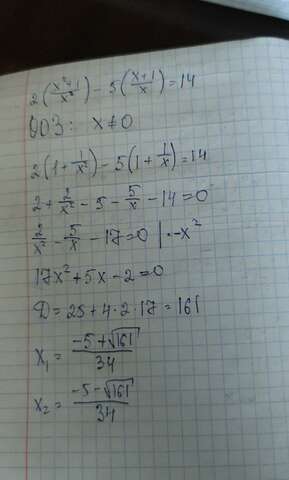 2(\frac{x²+1}{x²}) - 5(\frac{x+1}{x}) = 14
ОДЗ: x≠0
2(1+\frac{1}{x²}) - 5(1+\frac{1}{x}) = 14
2+\frac{2}{x²} - 5 - \frac{5}{x} - 14 = 0
\frac{2}{x²} - \frac{5}{x} - 17 = 0 | · -x²
17x² + 5x - 2 = 0
D = 25 + 4 · 2 · 17 = 161
x₁ = \frac{-5+\sqrt{161}}{34}
x₂ = \frac{-5-\sqrt{161}}{34}